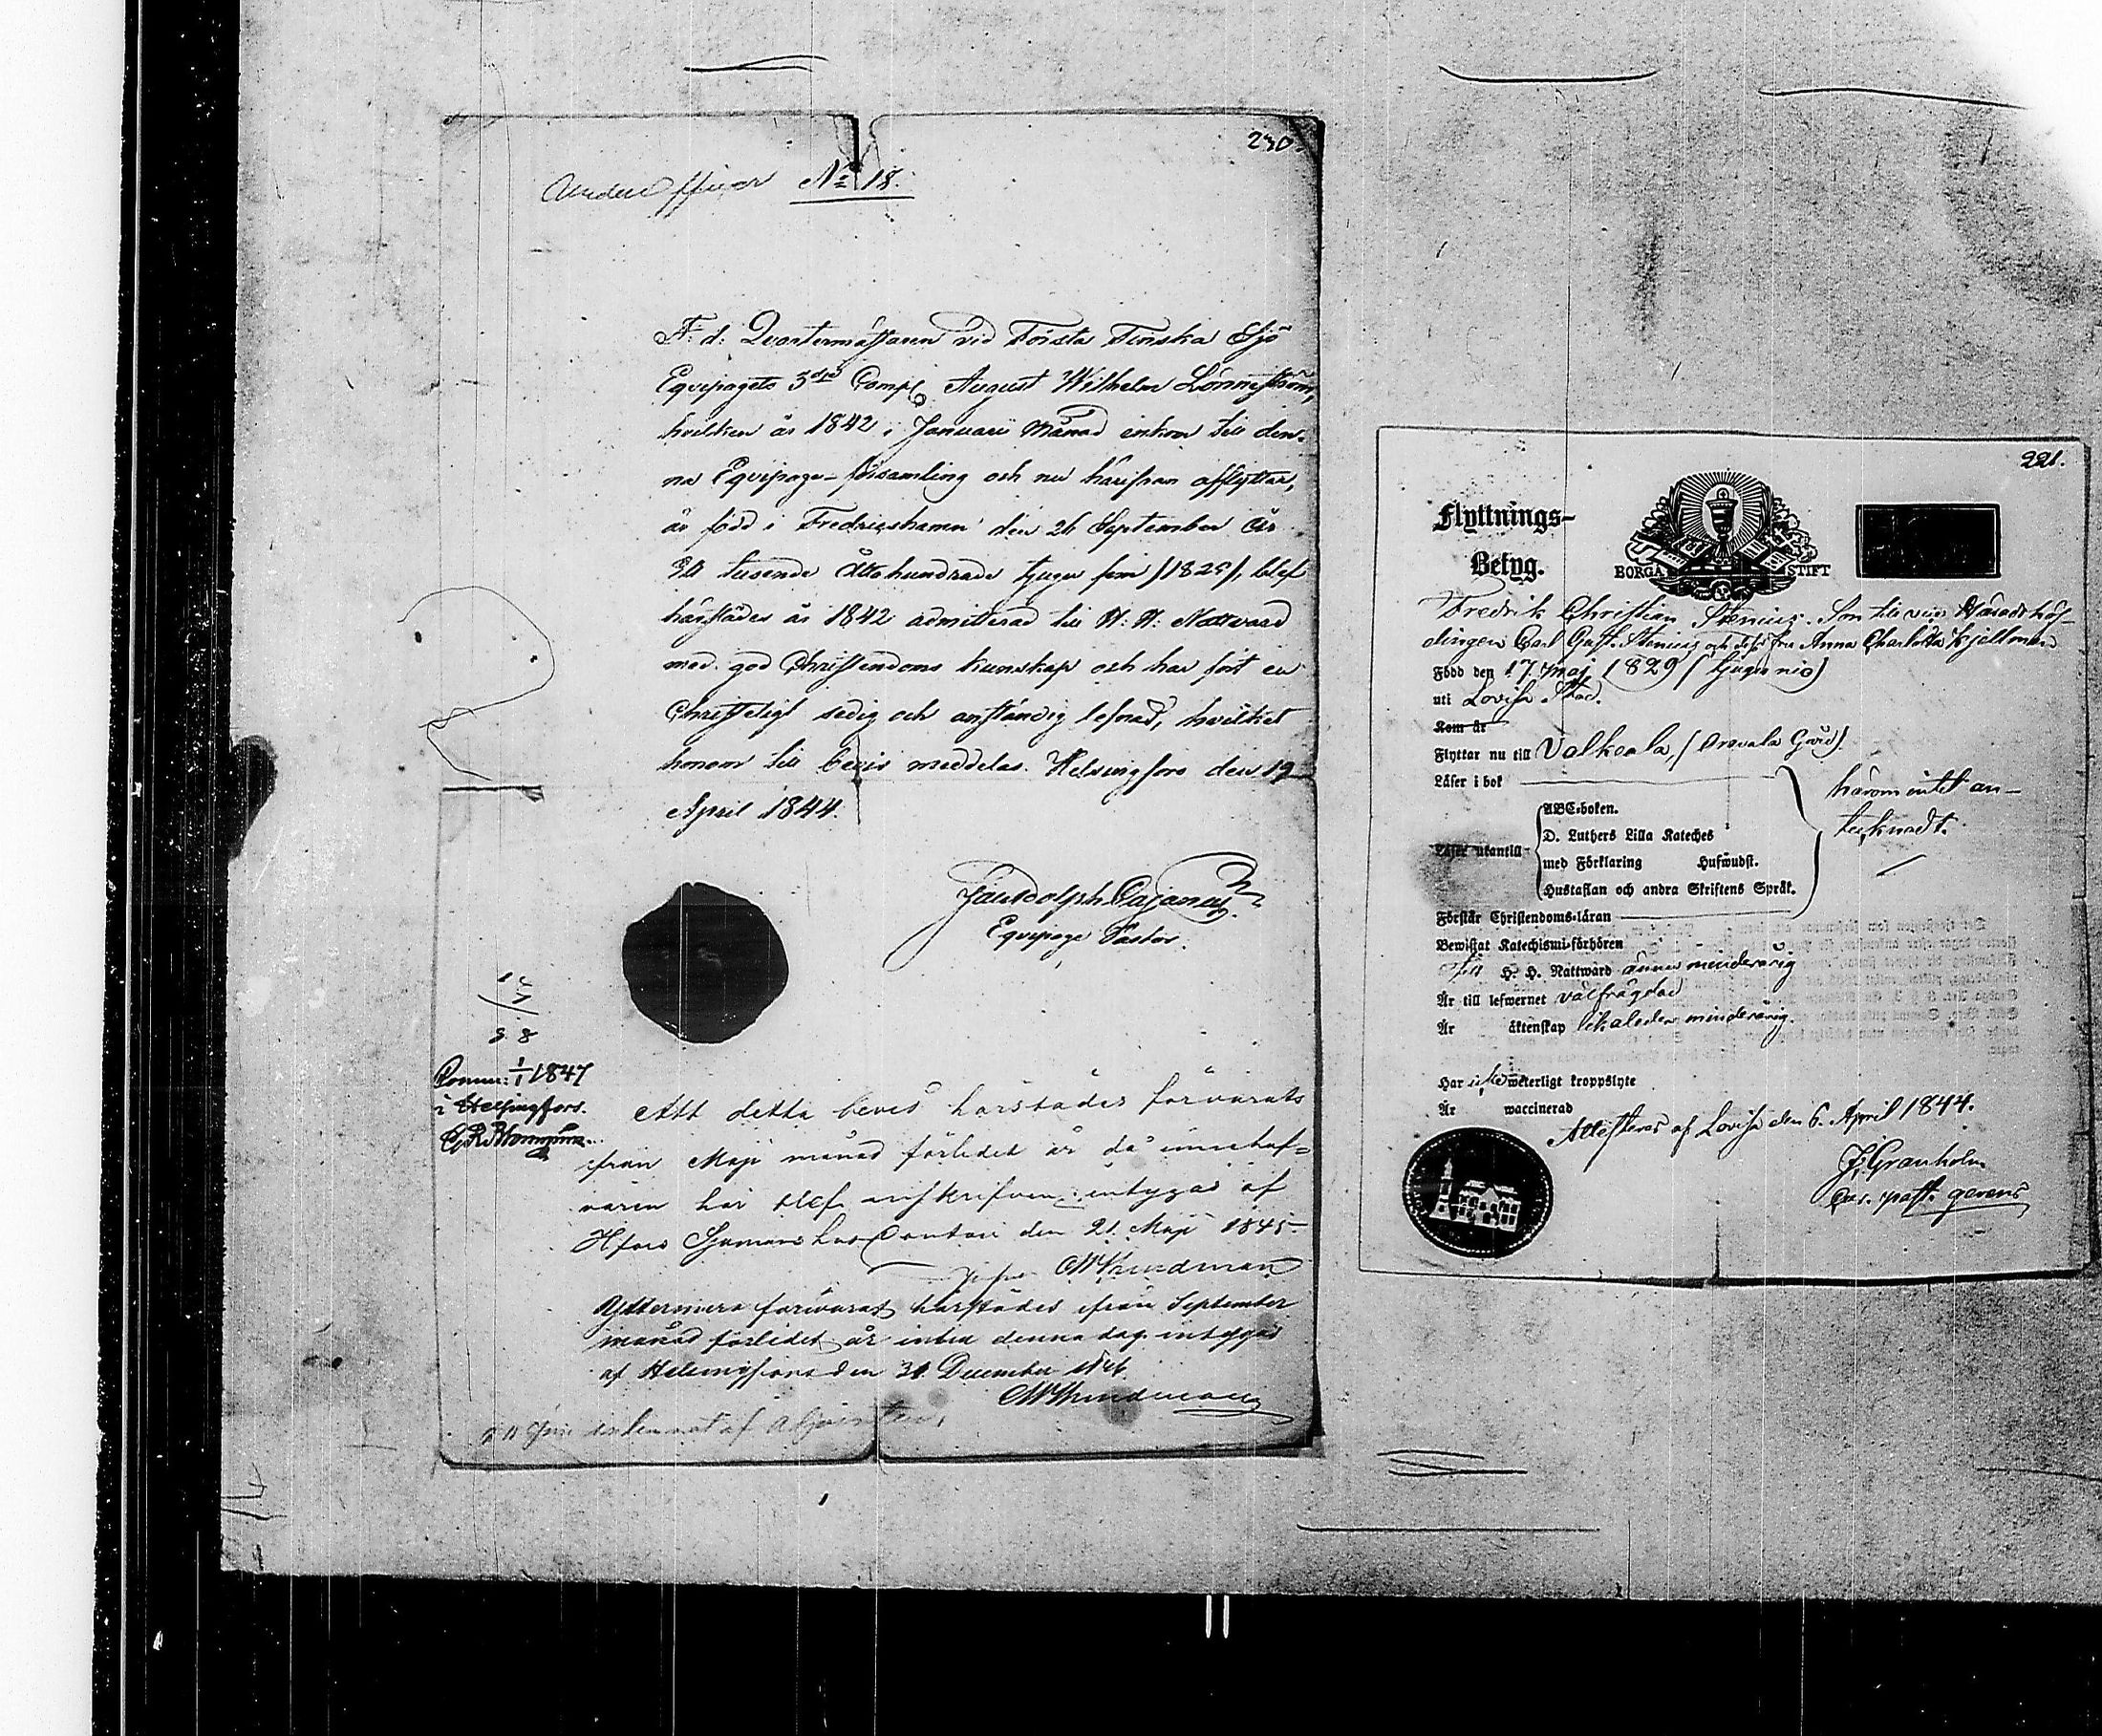 230.
Underofficer No 18.
F. d: Qvartermästaren vid Första Finska Sjö
Equipagets 3dje Comp. August Wilhelm Lönnström,
hvilken år 1842 i Januarii Månad inkom till den-
na Equipage-församling och nu härifrån afflyttar,
är född i Fredricshamn den 26 September År
Ett tusende Åttahundrade tjugu fem /1825/, blef
härstädes år 1842 admitterad till H: H: Nattvard
med god Christendoms kunskap och har fört en
Christeligt sedig och anständig lefnad, hvilket
honom till bevis meddelas. Helsingfors den 19
April 1844.
Cajanus
Equipage Pastor.
Comm: 1/1 1847
i Helsingfors.
Att detta bevis härstädes förvarats
ifrån Maji månad förledet år då innehaf-
varen här blef inskrifven intygas af
H:fors Sjömans hus Contoir den 21. Maji 1845
Yttermera förvarat härstädes ifrån September
månad förledet år intill denna dag intygas
af Helsingfors den 31 December 1846
221.
Flyttnings-
Betyg.
BORGÅ STIFT
Fredrik Christian Stenius. Son till vice Häradshöf-
dingen Carl Gust. Stenius och dess fru Anna Charlotta Kjellman
Född den 17 maj 1829 (tjugu nio)
uti Lovisa Stad.
Kom år
Flyttar nu till Valkeala, (Oravala Gård)
Läser i bok
härom intet an-
tecknadt.
Läser utantill
ABC-boken.
D. Luthers Lilla Kateches
med Förklaring Hufwudst.
Hustaflan och andra Skriftens Språk.
Förstår Christendoms-läran
Bewistat Katechismi-förhören
Till H. H. Nattward ännu minderårig
Är till lefwernet välfrägdad
Är äktenskap likaledes minderårig.
Har icke weterligt kroppslyte
Är waccinerad
Attesteras af Lovisa den 6. April 1844.
J. Granholm
past. gerens